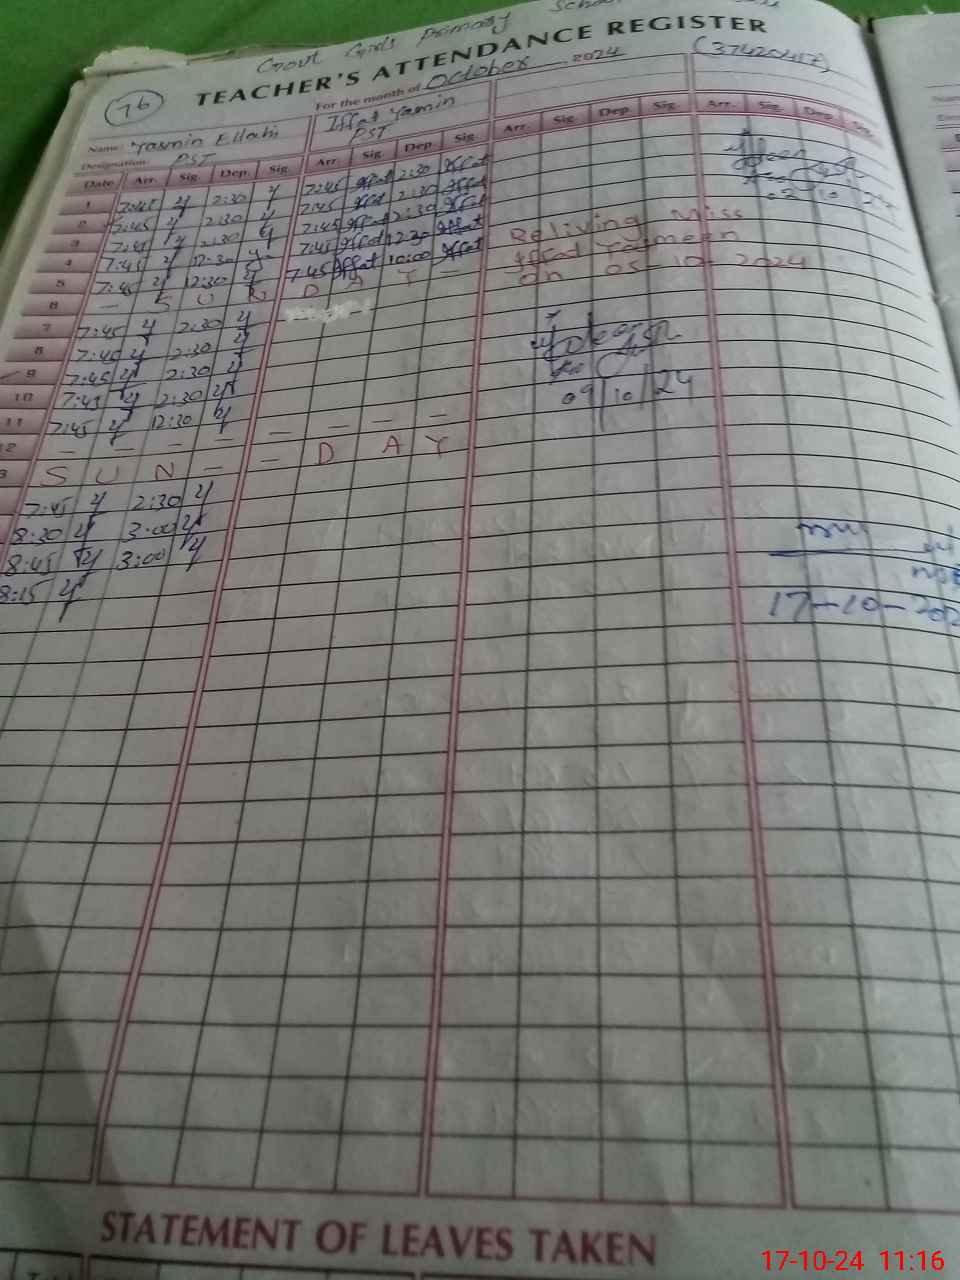 Govt Girls Primary School
TEACHER'S ATTENDANCE REGISTER
(37420417)
76
For the month of October 2024
Name: Yasmin Ellahi Iffat Yasmin
Designation: PST PST
Date Arr. Sig. Dep. Sig. Arr. Sig. Dep. Sig. Arr. Sig. Dep. Sig. Arr. Sig. Dep. Sig.
1 7:45 y 2:30 y 7:45 Iffat 2:30 Iffat
2 7:45 y 2:30 y 7:45 Iffat 2:30 Iffat
3 7:45 y 2:30 y 7:45 Iffat 2:30 Iffat
4 7:45 y 12:30 y 7:45 Iffat 12:30 Iffat
5 7:45 y 12:30 y 7:45 Iffat 10:00 Iffat
6 — S U N D A Y —
02 10 24
Reliving Miss
Iffat Yasmeen
on 05-10-2024
7 7:45 y 2:30 y
8 7:45 y 2:30 y
9 7:45 y 2:30 y
10 7:45 y 2:30 y
11 7:45 y 12:30 y
09/10/24
12 — — — — — — — —
S U N — — D A Y
7:45 y 2:30 y
8:30 y 3:00 y
8:45 y 3:00 y
8:15 y
17-10-202
STATEMENT OF LEAVES TAKEN
17-10-24 11:16